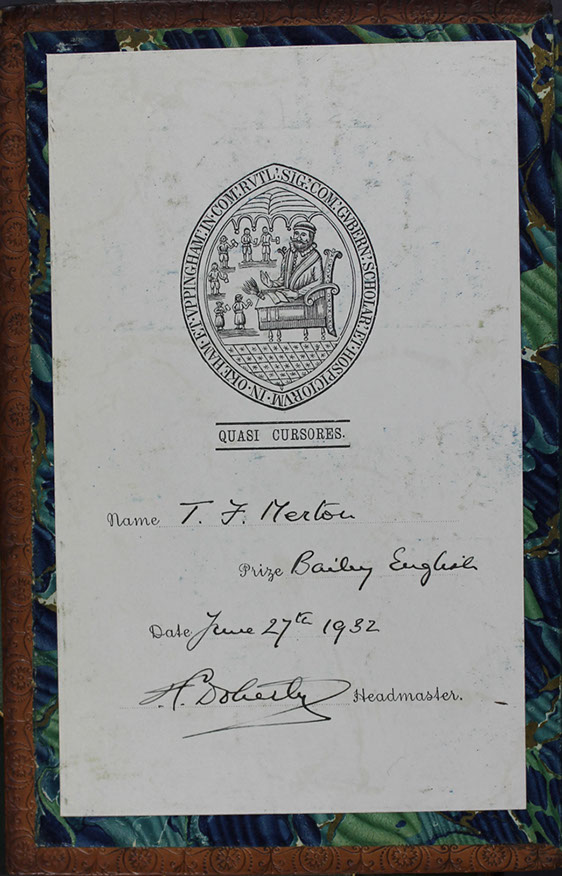 SIG: COM: GVBERN: SCHOLAR: ET HOSPICIORVM · IN · OKEHAM · ET · VPPINGHAM · IN · COM: RVTL:
QUASI CURSORES.
Name T. F. Merton
Prize Bailey English
Date June 27th 1932
H. Doherty Headmaster.